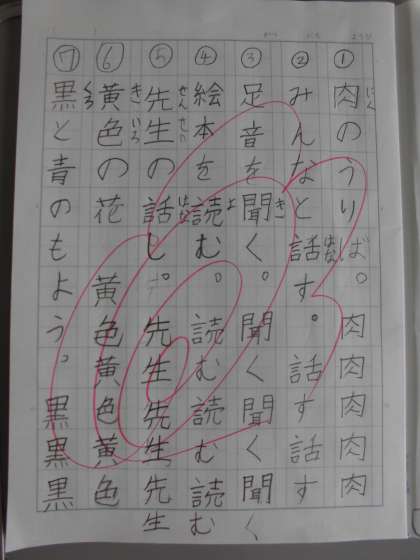 ①肉のうりば。肉肉肉肉
②みんなと話す。話す話す
③足音を聞く。聞く聞く聞く
④絵本を読む。読む読む読む
⑤先生の話し。先生先生先生
⑥黄色の花 黄色黄色黄色
⑦黒と青のもよう。黒黒黒